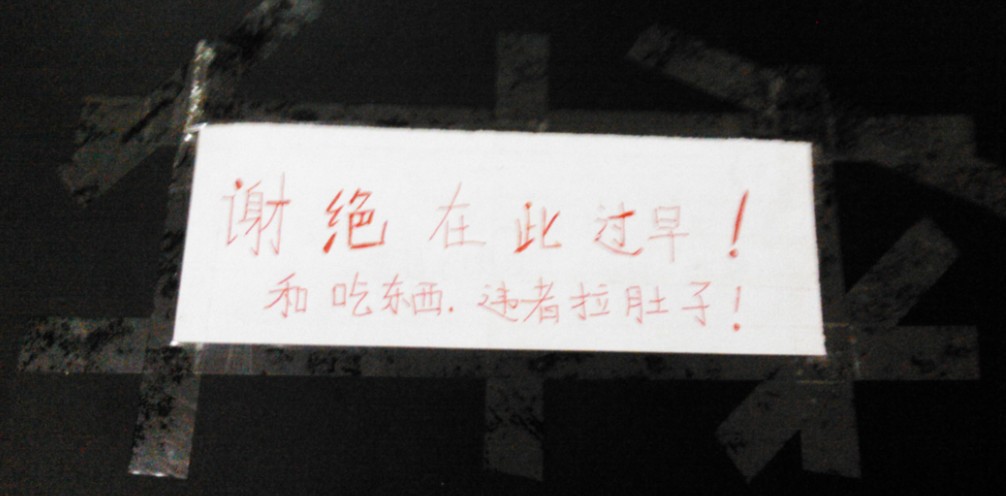 谢绝在此过早!
和吃东西.违者拉肚子!